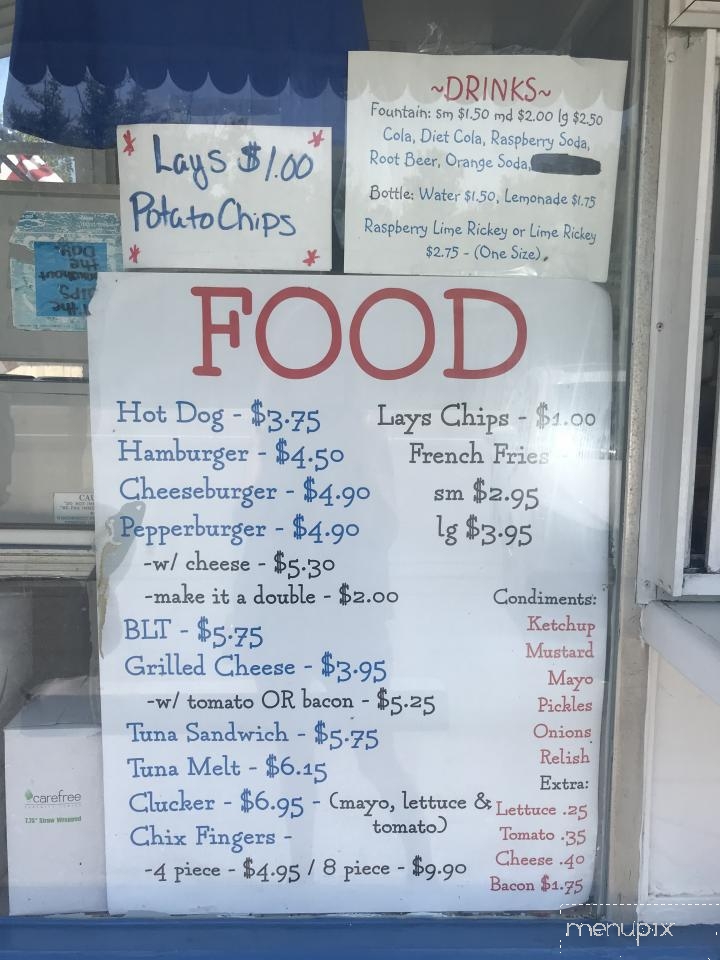 Lays $1.00
Potato Chips
~DRINKS~
Fountain: sm $1.50 md $2.00 lg $2.50
Cola, Diet Cola, Raspberry Soda,
Root Beer, Orange Soda,
Bottle: Water $1.50, Lemonade $1.75
Raspberry Lime Rickey or Lime Rickey
$2.75 - (One Size)
FOOD
Hot Dog - $3.75
Hamburger - $4.50
Cheeseburger - $4.90
Pepperburger - $4.90
-w/ cheese - $5.30
-make it a double - $2.00
BLT - $5.75
Grilled Cheese - $3.95
-w/ tomato OR bacon - $5.25
Tuna Sandwich - $5.75
Tuna Melt - $6.15
Clucker - $6.95 - (mayo, lettuce &
tomato)
Chix Fingers -
-4 piece - $4.95 / 8 piece - $9.90
Lays Chips - $1.00
French Fries -
sm $2.95
lg $3.95
Condiments:
Ketchup
Mustard
Mayo
Pickles
Onions
Relish
Extra:
Lettuce .25
Tomato .35
Cheese .40
Bacon $1.75
carefree
7.75" Straw Wrapped
menupix